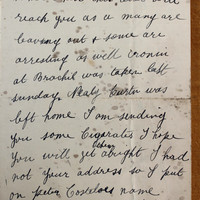 reach you as a many are
leaving out & some are
arresting as well Cronin
at Brochil was taken last
Sunday. Neaty Curtin was
left home I am sending
you some Cigerates I hope
you will get alright I had
not your address so I put
on Peter Costeloes name